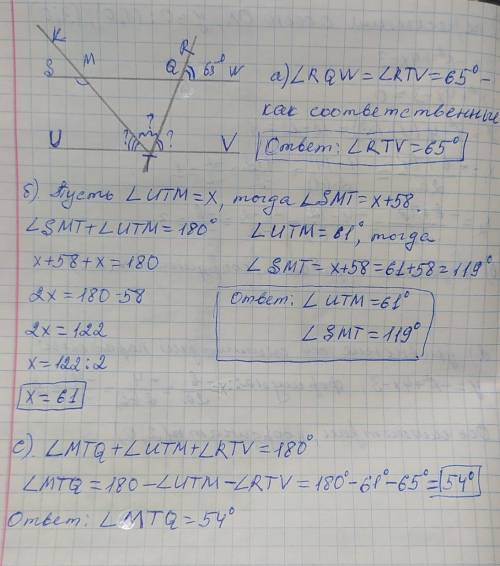 K
R
S M Q 65° W
? ? ?
U T V
а) ∠RQW = ∠RTV = 65° –
как соответственные
Ответ: ∠RTV = 65°
б) Пусть ∠UTM = x, тогда ∠SMT = x+58.
∠SMT + ∠UTM = 180°
x+58+x = 180
2x = 180-58
2x = 122
x = 122:2
x = 61
∠UTM = 61°, тогда
∠SMT = x+58 = 61+58 = 119°
Ответ: ∠UTM = 61°
∠SMT = 119°
с). ∠MTQ + ∠UTM + ∠RTV = 180°
∠MTQ = 180 – ∠UTM – ∠RTV = 180° - 61° - 65° = 54°
Ответ: ∠MTQ = 54°